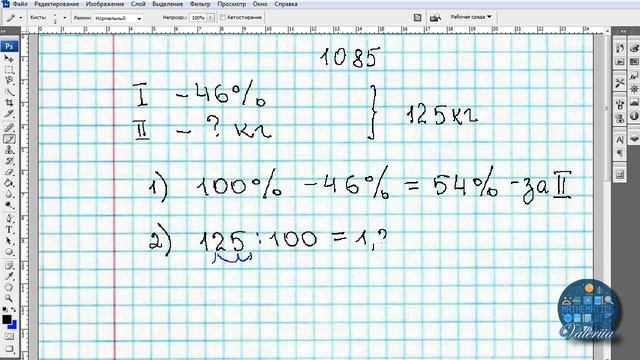 Файл Редактирование Изображение Слои Выделение Фильтр Просмотр Окно Справка
Кисть: Режим: Нормальный Непрозр.: 100% Автостирание Рабочая среда
1085
I - 46%
II - ? кг
125 кг
1) 100% - 46% = 54% - за II
2) 125 : 100 = 1,2
MATHEMATICS
Valeriia